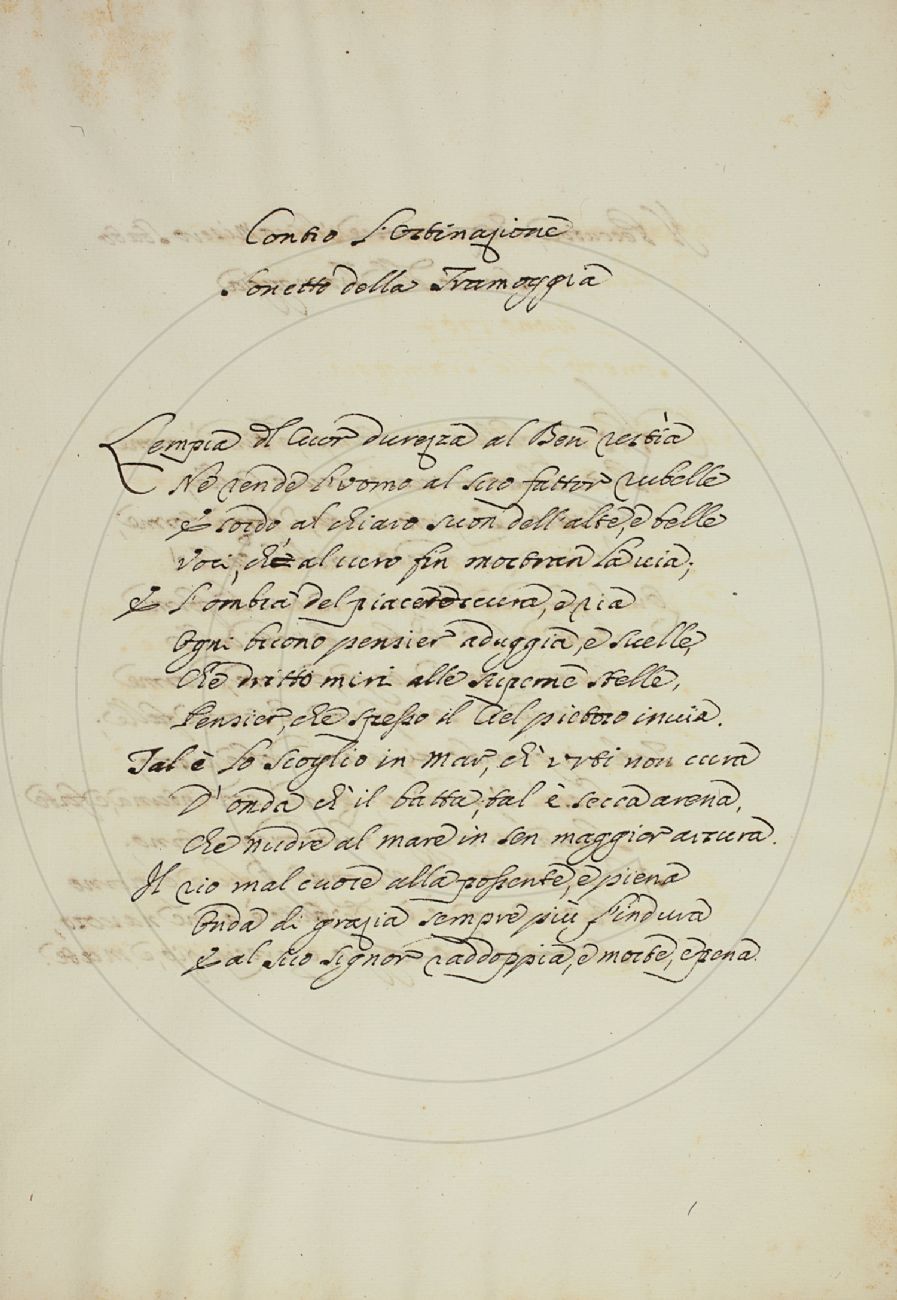 Contro l'Ostinazione
Sonetto della Tramoggia
L'empia del Cuor durezza al Ben restìa
Ne rende l'uomo al suo fattor rubelle
E sordo al chiaro suon dell'alte, e belle
Voci, che al vero fin mostran la via;
E l'ombra del piacer oscura, e ria
Ogni buono pensier aduggia, e svelle,
Che dritto miri alle superne stelle,
Pensier, che spesso il Ciel pietoso invia.
Tal è lo scoglio in mar, ch'urti non cura
D'onda ch'il batta, tal è secca arena,
Che nudre al mare in sen maggior arsura.
Il rio mal cuore alla possente, e piena
Onda di grazia sempre più s'indura
E al suo signor raddoppia, e morte, e pena.